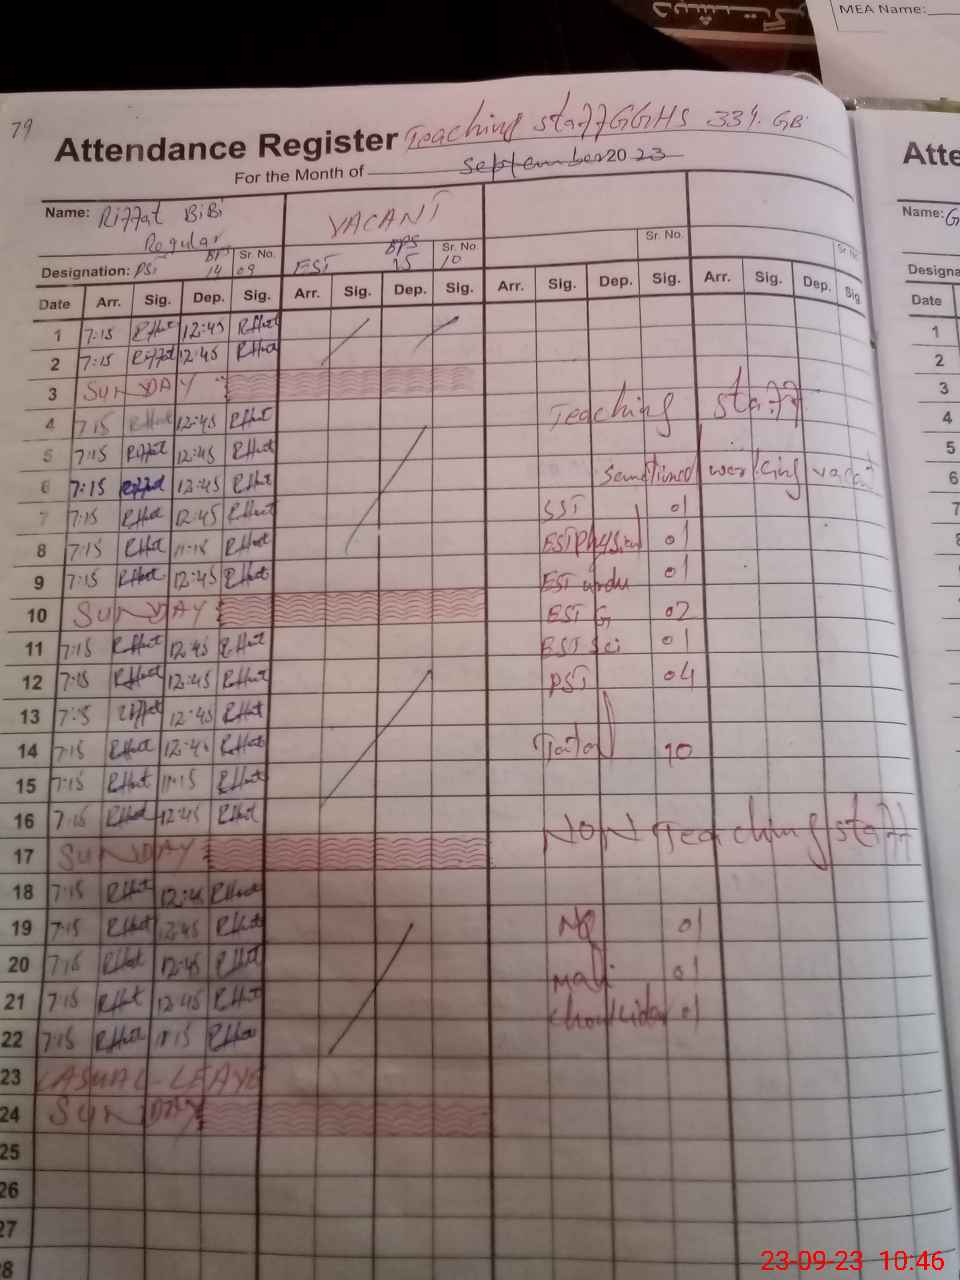 MEA Name:
79
Attendance Register Teaching staff GGHS 331. GB
For the Month of September 2023
Name: Riffat BiBi
Regular
VACANT
Designation: PST BPS 14 Sr. No. 09
EST BPS 15 Sr. No. 10
Sr. No.
Sr. No.
Date Arr. Sig. Dep. Sig. Arr. Sig. Dep. Sig. Arr. Sig. Dep. Sig. Arr. Sig. Dep. Sig
1 7:15 Riffat 12:45 Riffat
2 7:15 Riffat 12:45 Riffat
3 SUNDAY
4 7:15 Riffat 12:45 Riffat
5 7:15 Riffat 12:45 Riffat
6 7:15 Riffat 12:45 Riffat
7 7:15 Riffat 12:45 Riffat
8 7:15 Riffat 11:15 Riffat
9 7:15 Riffat 12:45 Riffat
10 SUNDAY
11 7:15 Riffat 12:45 Riffat
12 7:15 Riffat 12:45 Riffat
13 7:15 Riffat 12:45 Riffat
14 7:15 Riffat 12:45 Riffat
15 7:15 Riffat 11:15 Riffat
16 7:15 Riffat 12:45 Riffat
17 SUNDAY
18 7:15 Riffat 12:45 Riffat
19 7:15 Riffat 12:45 Riffat
20 7:15 Riffat 12:45 Riffat
21 7:15 Riffat 12:45 Riffat
22 7:15 Riffat 11:15 Riffat
23 CASUAL-LEAVE
24 SUNDAY
25
26
27
28
Teaching staff
Sanctioned working vacant
SST 01
EST Physical 01
EST urdu 01
EST G 02
EST Sci 01
PST 04
Total 10
NON Teaching staff
NQ 01
mali 01
Chowkidar 01
Atte
Name: G
Designa
Date
1
2
3
4
5
6
7
8
9
10
11
12
13
14
15
16
17
18
19
20
21
22
23
24
25
26
27
28
23-09-23 10:46